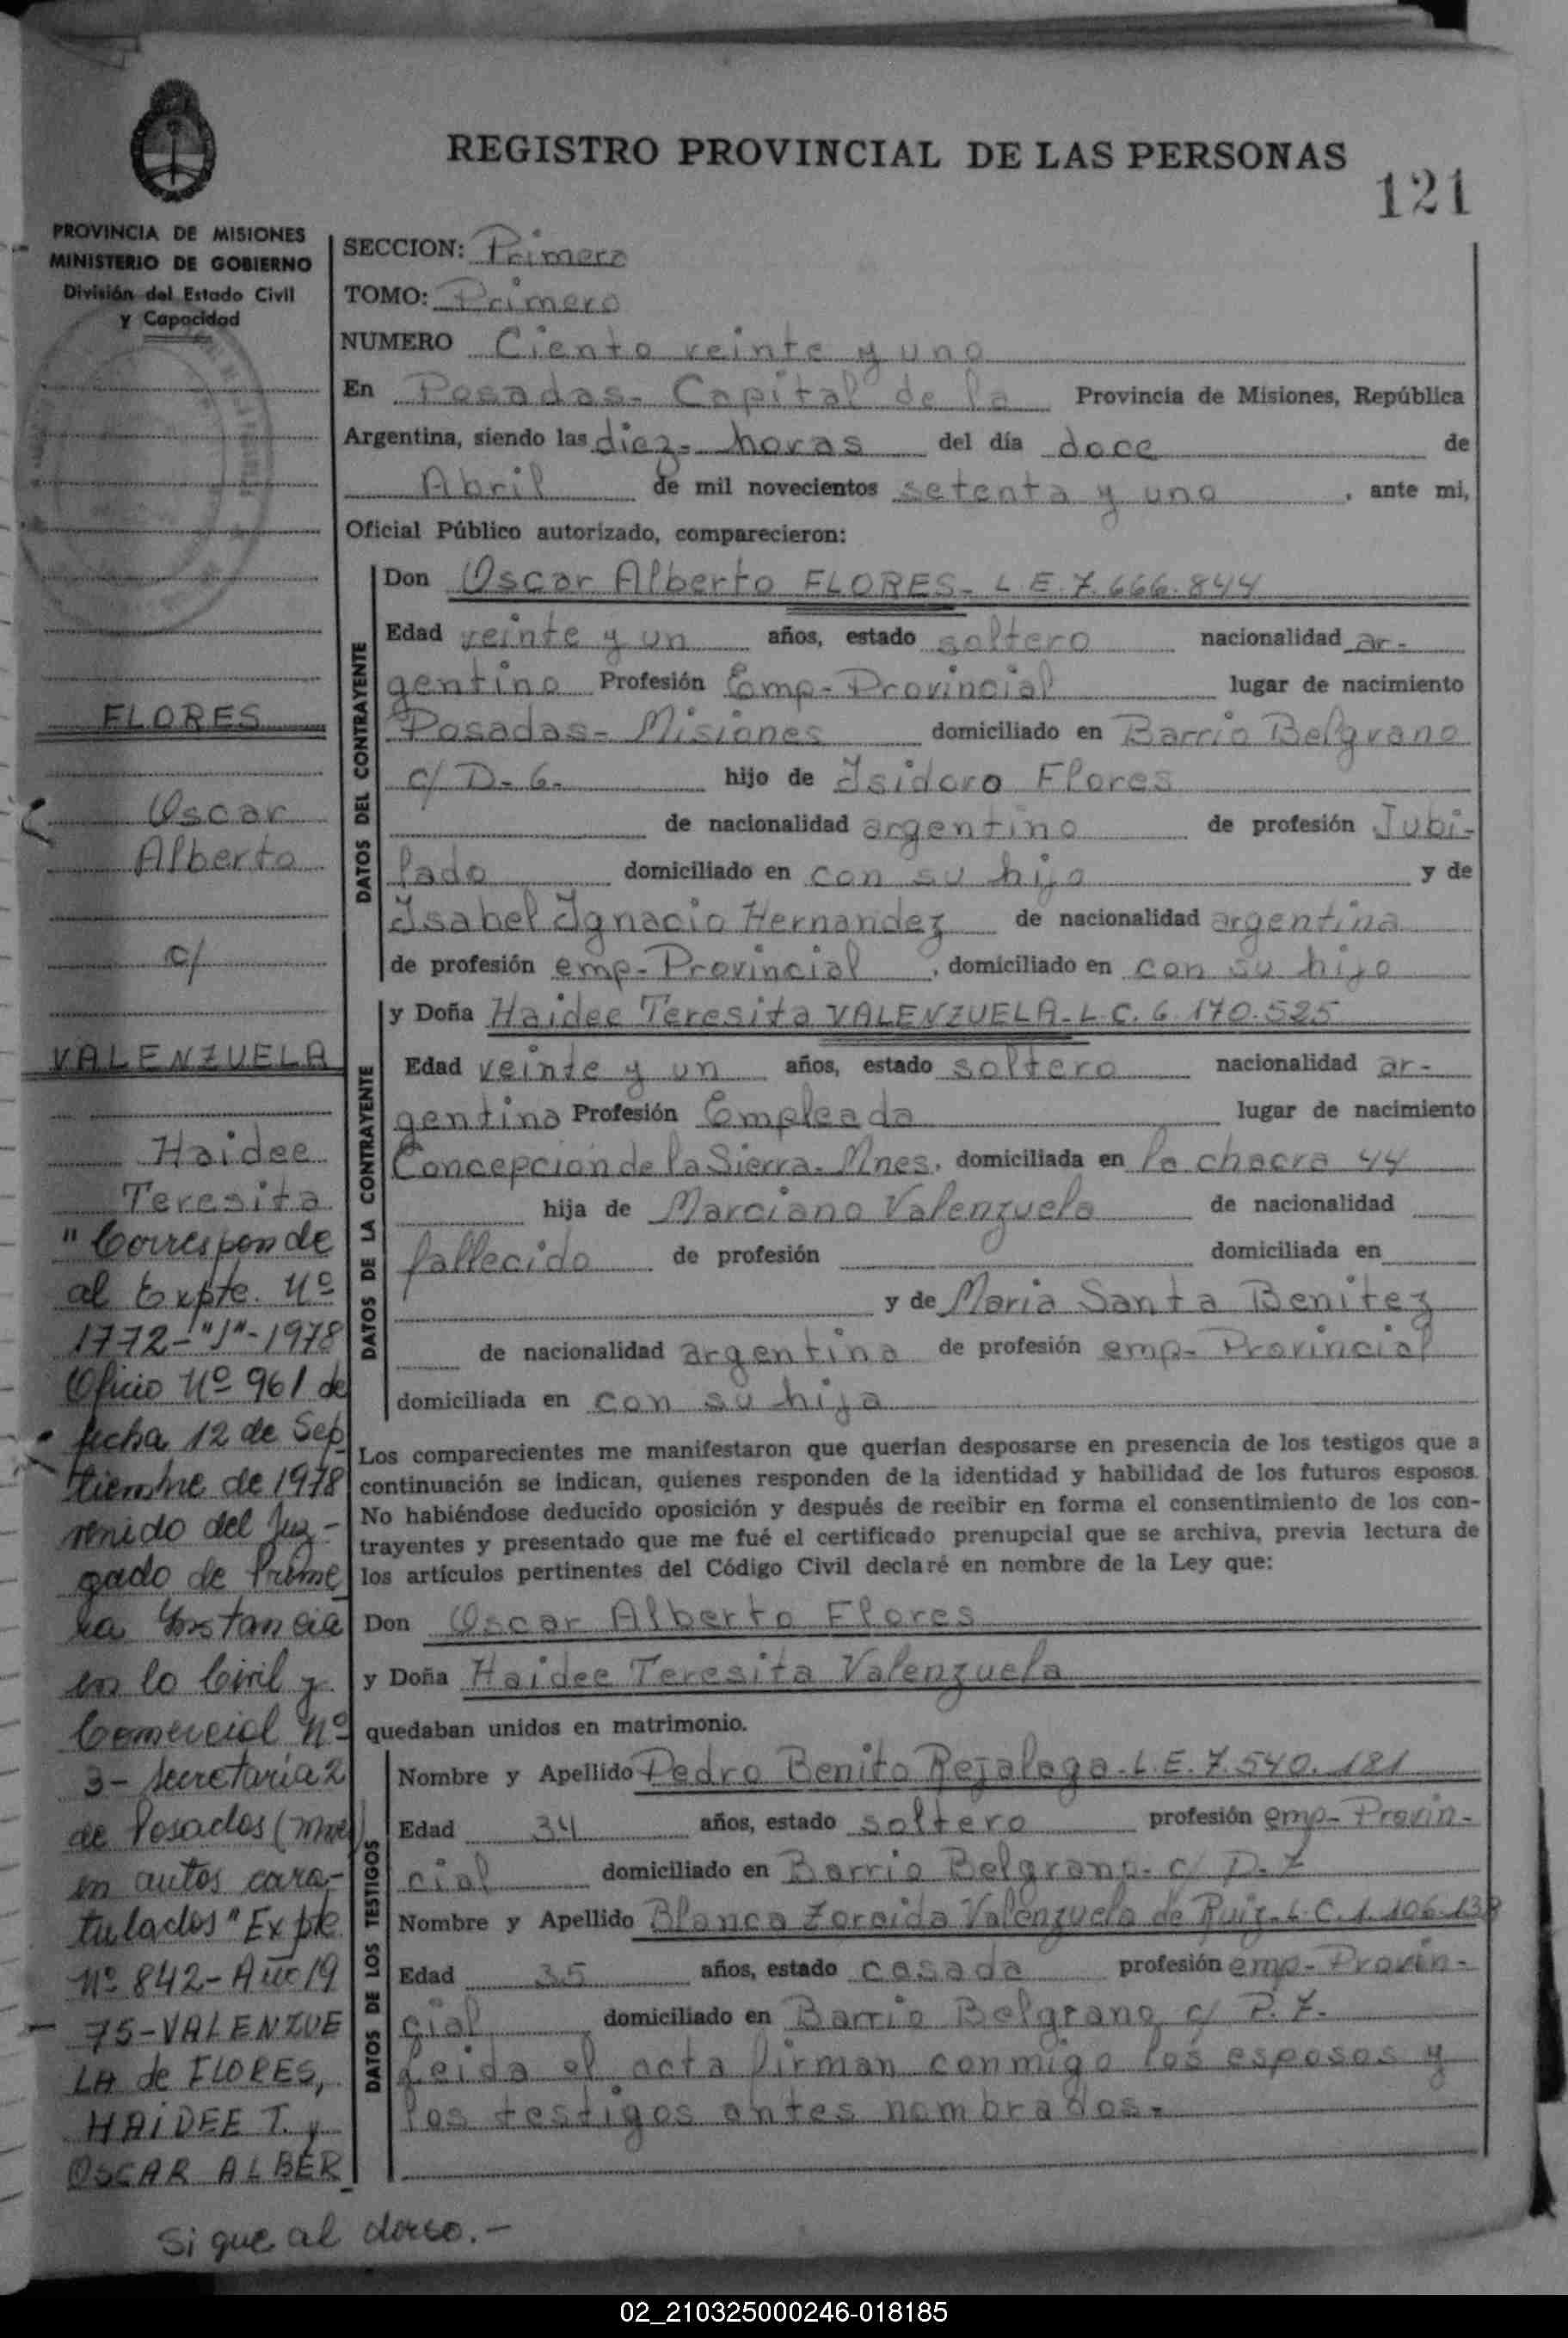 REGISTRO PROVINCIAL DE LAS PERSONAS
121
PROVINCIA DE MISIONES
MINISTERIO DE GOBIERNO
División del Estado Civil
y Capacidad
FLORES
Oscar
Alberto
c/
VALENZUELA
Haidee
Teresita
"Corresponde
al Expte. Nº
1772-"J"-1978
Oficio Nº 961 de
fecha 12 de Sep
tiembre de 1978
venido del Juz-
gado de Prime
ra Instancia
en lo Civil y
Comercial Nº
3- Secretaría 2
de Posadas (Mnes)
en autos cara-
tulados "Expte
Nº 842-Año 19
75-VALENZUE
LA de FLORES,
HAIDEE T. y
OSCAR ALBER
SECCION: Primera
TOMO: Primero
NUMERO Ciento veinte y uno
En Posadas- Capital de la Provincia de Misiones, República
Argentina, siendo las diez- horas del día doce de
Abril de mil novecientos setenta y uno, ante mi,
Oficial Público autorizado, comparecieron:
DATOS DEL CONTRAYENTE
Don Oscar Alberto FLORES- L.E.7.666.844
Edad veinte y un años, estado soltero nacionalidad ar-
gentino Profesión Emp-Provincial lugar de nacimiento
Posadas- Misiones domiciliado en Barrio Belgrano
c/ D-6- hijo de Isidoro Flores
de nacionalidad argentino de profesión Jubi-
lado domiciliado en con su hijo y de
Isabel Ignacio Hernandez de nacionalidad argentina
de profesión emp-Provincial, domiciliado en con su hijo
DATOS DE LA CONTRAYENTE
y Doña Haidee Teresita VALENZUELA-L.C. 6.170.525
Edad veinte y un años, estado soltero nacionalidad ar-
gentina Profesión Empleada lugar de nacimiento
Concepcion de la Sierra-Mnes, domiciliada en la chacra 44
hija de Marciano Valenzuela de nacionalidad
fallecido de profesión domiciliada en
y de Maria Santa Benitez
de nacionalidad argentina de profesión emp-Provincial
domiciliada en con su hija
Los comparecientes me manifestaron que querían desposarse en presencia de los testigos que a
continuación se indican, quienes responden de la identidad y habilidad de los futuros esposos.
No habiéndose deducido oposición y después de recibir en forma el consentimiento de los con-
trayentes y presentado que me fué el certificado prenupcial que se archiva, previa lectura de
los artículos pertinentes del Código Civil declaré en nombre de la Ley que:
Don Oscar Alberto Flores
y Doña Haidee Teresita Valenzuela
quedaban unidos en matrimonio.
DATOS DE LOS TESTIGOS
Nombre y Apellido Pedro Benito Rejalaga-L.E.7.540.181
Edad 34 años, estado soltero profesión emp-Provin-
cial domiciliado en Barrio Belgrano- c/ D-7
Nombre y Apellido Blanca Zoraida Valenzuela de Ruiz-L.C.1.106.138
Edad 35 años, estado casada profesión emp-Provin-
cial domiciliado en Barrio Belgrano c/ P. 7.
Leida el acta firman conmigo los esposos y
los testigos antes nombrados.-
Sigue al dorso.-
02_210325000246-018185